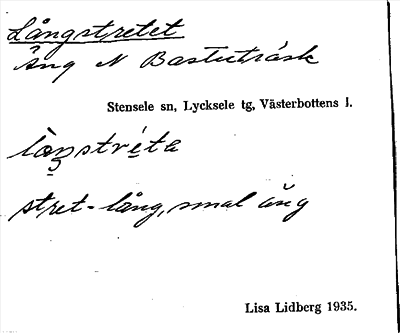 Långstretet
äng N Bastuträsk
Stensele sn, Lycksele tg, Västerbottens l.
stret = lång, smal äng
Lisa Lidberg 1935.